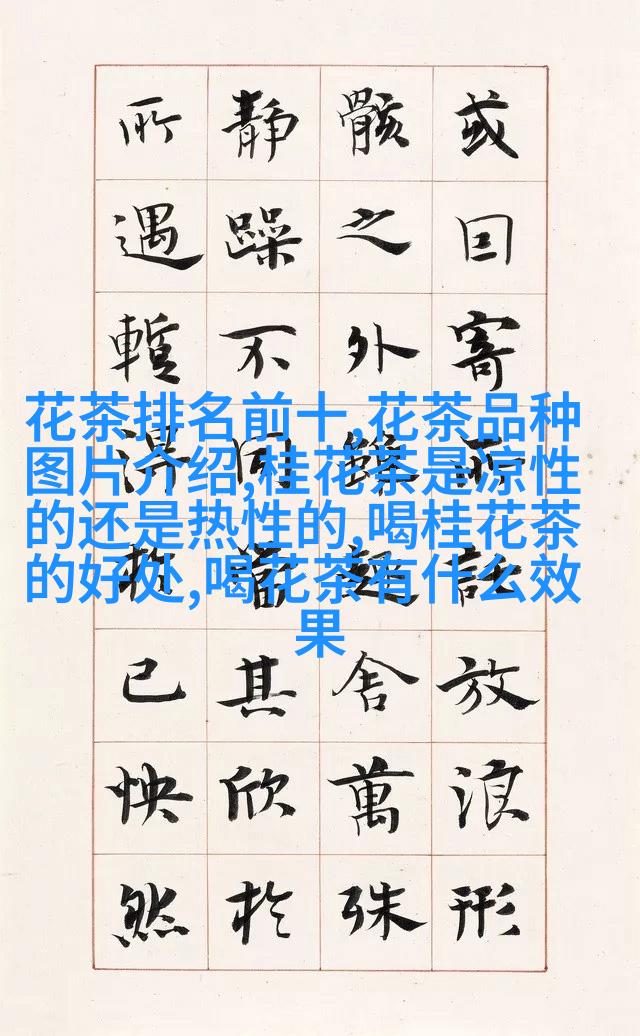 或囙寄所託放浪形
骸之外雖趣舍萬殊
静躁不同當其欣於
所遇暫得於己怏然
花茶排名前十,花茶品种
图片介绍,桂花茶是凉性
的还是热性的,喝桂花茶
的好处,喝花茶有什么效
果